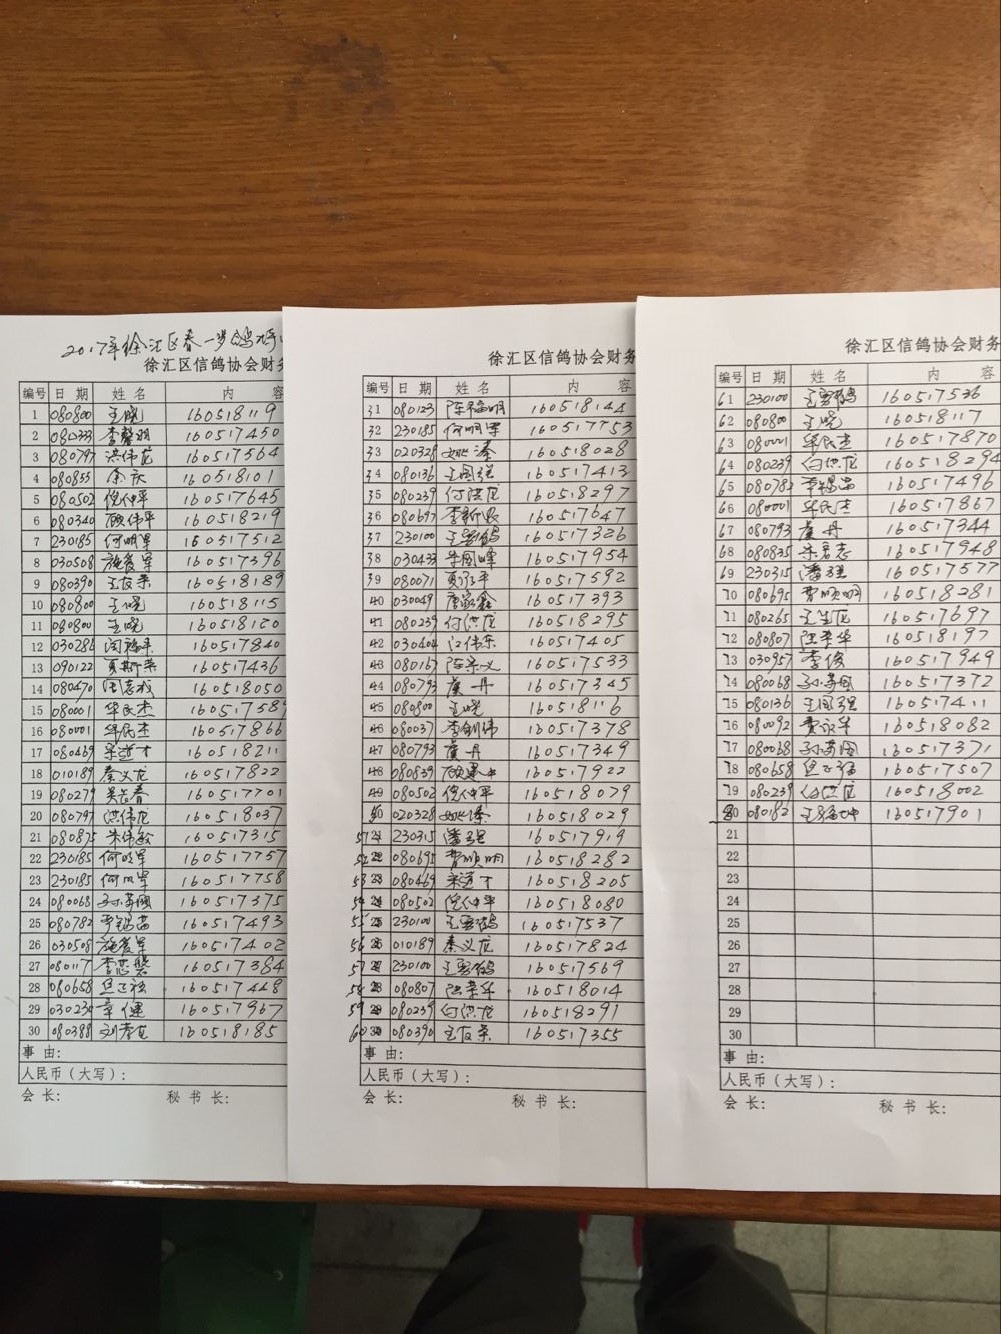 2017年徐汇区春一岁鸽
徐汇区信鸽协会财务
编号 日 期 姓 名 内 容
1 080800 王晓 160518119
2 080333 李馨羽 160517450
3 080797 洪伟龙 160517564
4 080855 余庆 160518101
5 080502 倪仲平 160517645
6 080340 顾伟平 160518219
7 230185 何明军 160517512
8 030508 施爱军 160517396
9 080390 王友荣 160518189
10 080800 王晓 160518115
11 080800 王晓 160518120
12 030286 160517840
13 090122 夏斯荣 160517436
14 080470 周志成 160518050
15 080001 华民杰 16051758
16 080001 华民杰 160517866
17 080469 160518211
18 010189 秦义龙 160517822
19 080279 吴长春 160517701
20 080797 洪伟龙 160518037
21 080875 朱伟敏 160517315
22 230185 何明军 160517757
23 230185 何明军 160517758
24 080068 160517375
25 080782 160517493
26 030508 施爱军 160517402
27 080117 160517384
28 080658 160517448
29 030230 章健 160517967
30 080388 刘孝龙 160518185
事 由:
人民币(大写):
会 长: 秘 书 长:
徐汇区信鸽协会财务
编号 日 期 姓 名 内 容
31 080123 陈福明 160518144
32 230185 何明军 160517753
33 020328 姚涛 160518028
34 080136 王国强 160517413
35 080239 付洪龙 160518297
36 080697 160517647
37 230100 160517326
38 030433 160517954
39 080071 160517592
40 030049 唐家鑫 160517393
41 080239 付洪龙 160518295
42 030404 江伟东 160517405
43 080167 160517533
44 080793 虞丹 160517345
45 080800 王晓 160518116
46 080037 李钊伟 160517378
47 080793 虞丹 160517349
48 080839 160517922
49 080502 倪仲平 160518079
50 020328 姚涛 160518029
51 230315 潘强 160517919
52 080695 曹顺明 160518282
53 080469 160518205
54 080502 倪仲平 160518080
55 230100 160517537
56 010189 秦义龙 160517824
57 230100 160517569
58 080807 陆荣华 160518014
59 080239 付洪龙 160518291
60 080390 王友荣 160517355
事 由:
人民币(大写):
会 长: 秘 书 长:
徐汇区信鸽协会财务
编号 日 期 姓 名 内 容
61 230100 160517536
62 080800 王晓 160518117
63 080001 华民杰 160517870
64 080239 付洪龙 160518294
65 080782 160517496
66 080001 华民杰 160517867
67 080793 虞丹 160517344
68 080835 160517948
69 230315 潘强 160517577
70 080695 曹顺明 160518281
71 080265 王生龙 160517697
72 080807 陆荣华 160518197
73 030957 李俊 160517949
74 080068 160517372
75 080136 王国强 160517411
76 080092 费永华 160518082
77 080068 160517371
78 080658 160517507
79 080239 付洪龙 160518002
80 080182 160517901
21
22
23
24
25
26
27
28
29
30
事 由:
人民币(大写):
会 长: 秘 书 长: